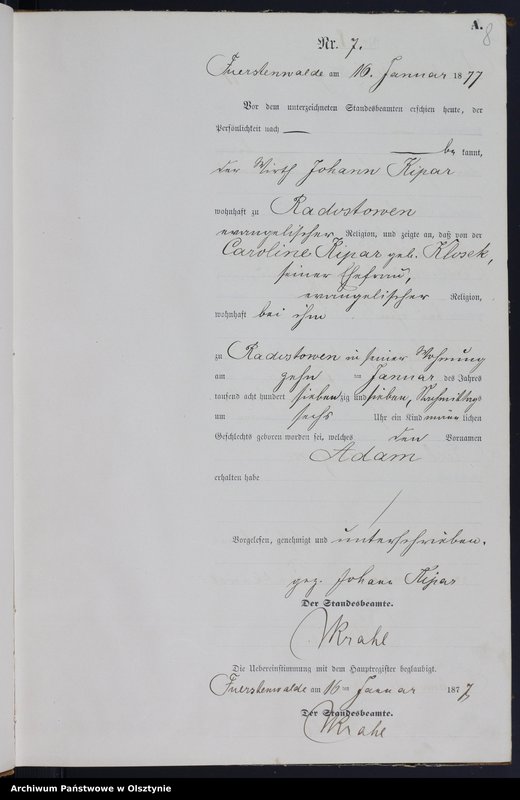 A.
8
Nr. 7.
Fuerstenwalde am 16. Januar 1877
Vor dem unterzeichneten Standesbeamten erschien heute, der
Persönlichkeit nach
be kannt,
der Wirth Johann Kipar
wohnhaft zu Radostowen
evangelischer Religion, und zeigte an, daß von der
Caroline Kipar geb. Klosek,
seiner Ehefrau,
evangelischer Religion,
wohnhaft bei ihm
zu Radostowen in seiner Wohnung
am zehn ten Januar des Jahres
tausend acht hundert siebenzig und sieben, Nachmittags
um sechs Uhr ein Kind männlichen
Geschlechts geboren worden sei, welches den Vornamen
Adam
erhalten habe
Vorgelesen, genehmigt und unterschrieben.
gez. Johann Kipar
Der Standesbeamte.
Krahl
Die Uebereinstimmung mit dem Hauptregister beglaubigt.
Fuerstenwalde am 16 ten Januar 1877
Der Standesbeamte.
Krahl
Archiwum Państwowe w Olsztynie